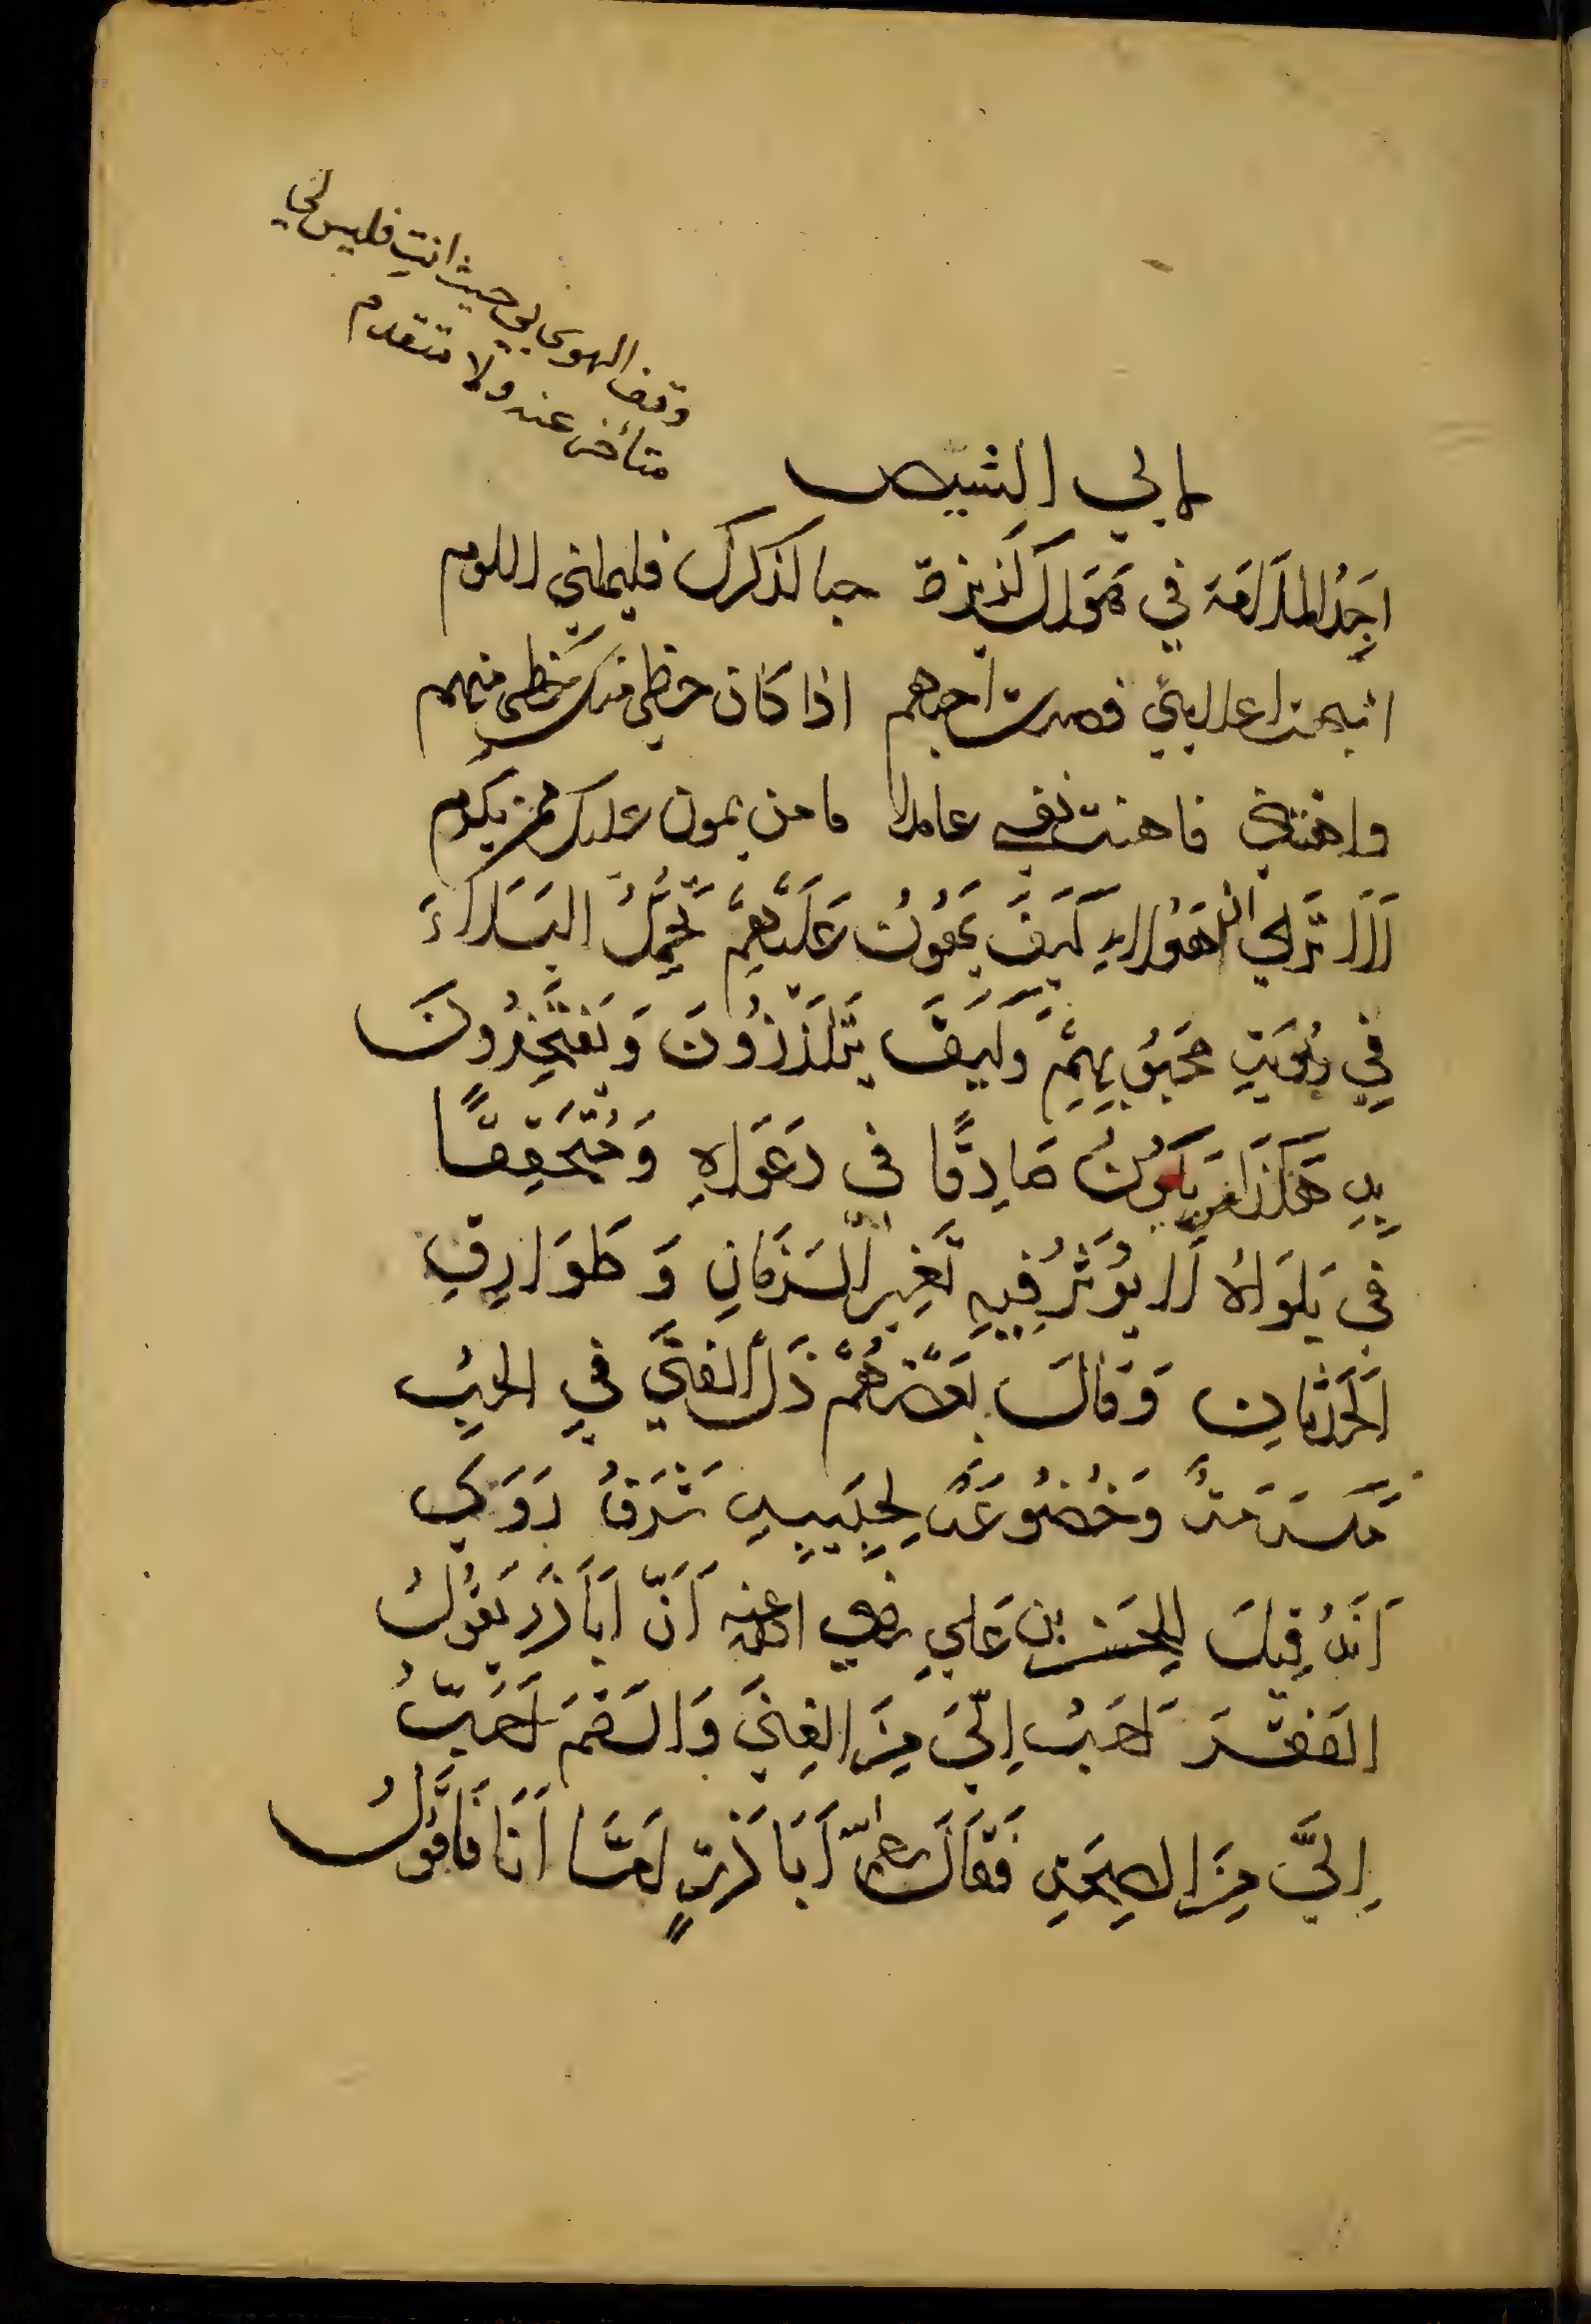 وقف الهوى بي حيث انتِ فليس لي
متأخر عنه ولا متقدم
لابي الشيص
اجِدُ الملامَة في هَوَاكَ لذيذة حبا لذكرك فليلمني اللوم
اشبهت اعدائي فصرت احبهم اذا كان حظي منك حظي منهم
واهنتني فاهنت نفسي عامدا ما من يهون عليك ممن يكرم
اَلَا تَرَى الى هَؤُلاءِ كَيفَ يَهُونُ عَلَيْهِمْ تَحَمُّلُ البَلَاءَ
فِي رُؤيَتِ مَحبُوبِهِمْ وَكَيفَ يَتَلَذَّذُونَ وَيَفتَخِرُونَ
بِهِ هَكَذَا مَن يَكُونُ صَادِقًا فى دَعوَاهِ وَمُتَحَقِقًا
فِى بَلوَاهُ لَا يُؤَثِّرُ فِيهِ تَغيِيرُ الزَمَانِ وَطَوَارِقِ
الحَدَثَانِ وَقَالَ بَعضُهُمْ ذَلُّ الفَتَى فِي الحُبِ
مَكرَمَةٌ وَخُضُوعُهُ لِحَبِيبِهِ شَرَفُ رَوَى
اَنَهُ قِيلَ لِلحَسَنِ بنِ عَلِي رضي الله عنه اَنَّ اَبَا ذَر يَقُولُ
الفَقْرَ اَحَبُ اِلَيَّ مِنَ الغِنَى وَالسَقَمَ اَحَبُّ
اِلَيَّ مِنَ الصِحَةِ فَقَالَ رحم الله اَبَا ذَرٍّ اَمَّا اَنَا فَاَقُولُ